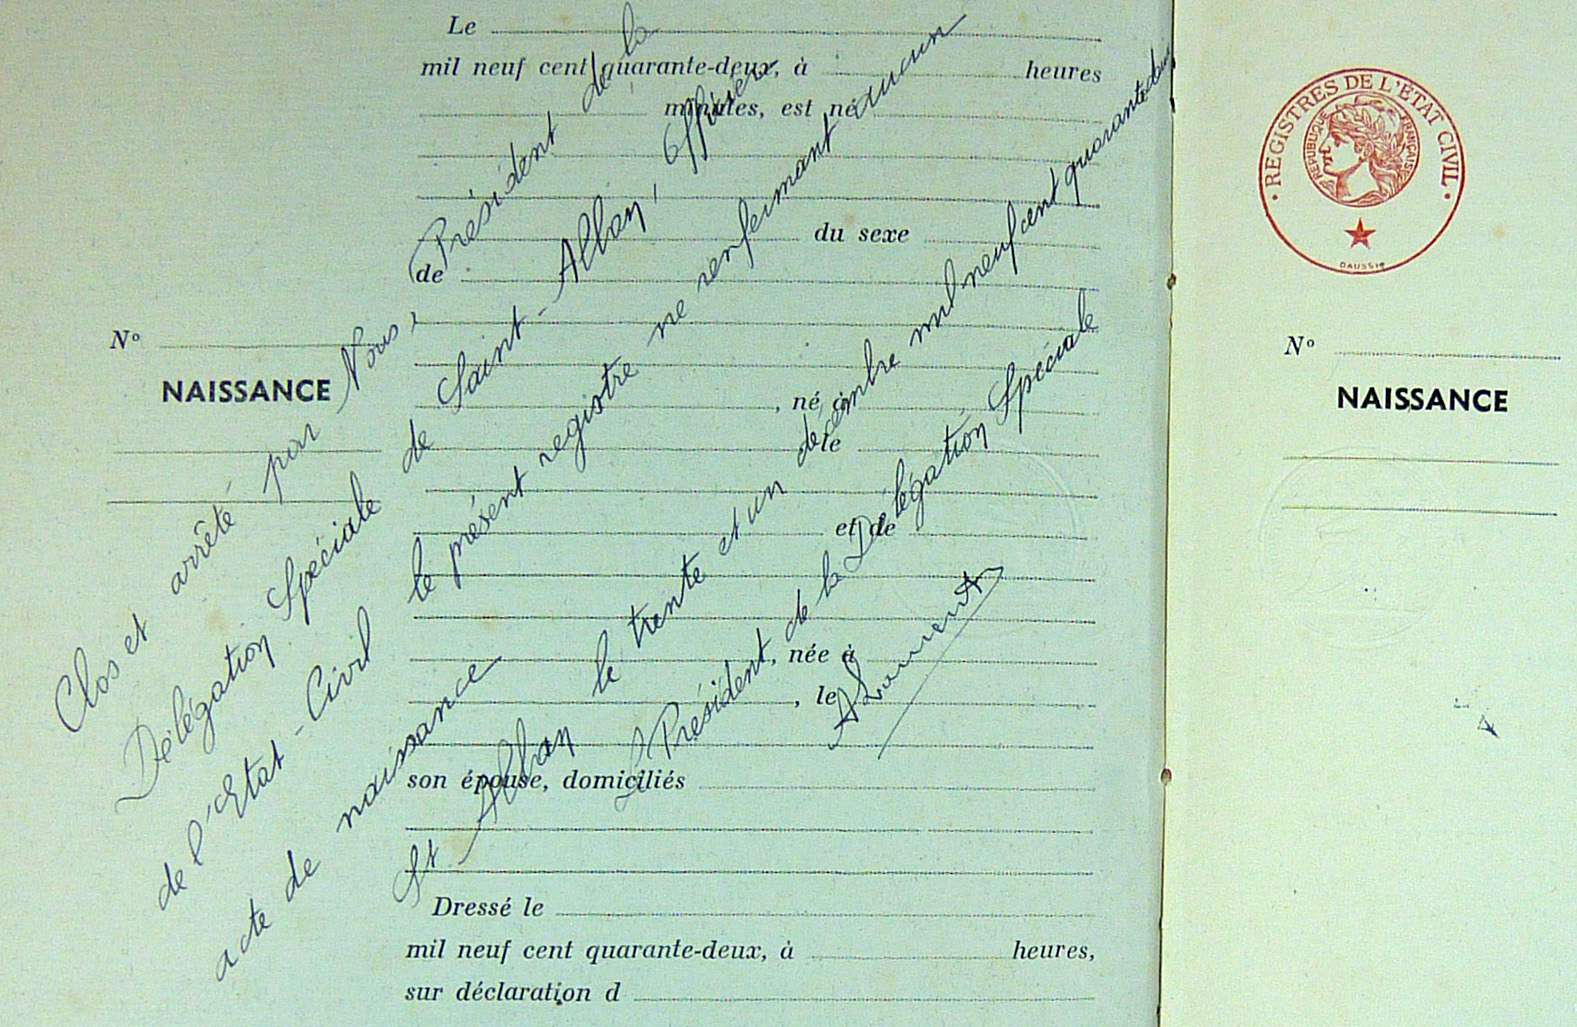 Le
mil neuf cent quarante-deux, à heures
minutes, est né
du sexe
de
, né à
le
et de
, née à
, le
son épouse, domiciliés
Dressé le
mil neuf cent quarante-deux, à heures,
sur déclaration d
Nº
NAISSANCE
Clos et arrêté par Nous, Président de la
Délégation Spéciale de Saint-Alban, Officier
de l'Etat-Civil le présent registre ne renfermant aucun
acte de naissance
St Alban le trente et un décembre mil neuf cent quarante deux
Le Président de la Délégation Spéciale
REGISTRES DE L'ÉTAT CIVIL
REPUBLIQUE FRANÇAISE
Nº
NAISSANCE